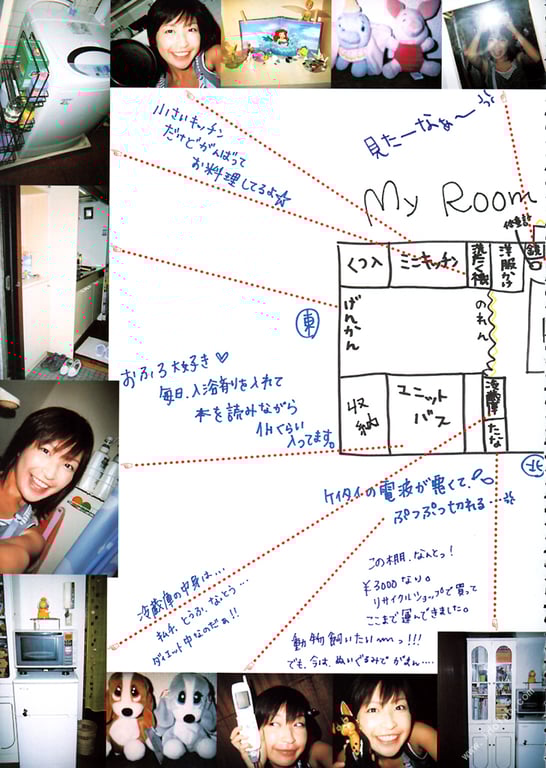 小さいキッチン
だけどがんばって
お料理してるよ☆
見たーなぁ〜
My Room
体重計
くつ入
ミニキッチン
洗たく機
洋服かけ
鏡
げんかん
のれん
東
おふろ大好き♡
毎日、入浴剤を入れて
本を読みながら
1hぐらい
入ってます。
収納
ユニット
バス
冷蔵庫
たな
北
ケイタイの電波が悪くて、
ぷつぷつ切れる…
この棚、なんとっ!
¥3000なり。
リサイクルショップで買って
ここまで運んできました。
冷蔵庫の中身は…
キムチ、とうふ、なっとう…
ダイエット中なのだぁ!!
動物飼いたいmっ!!!
でも、今は、ぬいぐるみでがまん….